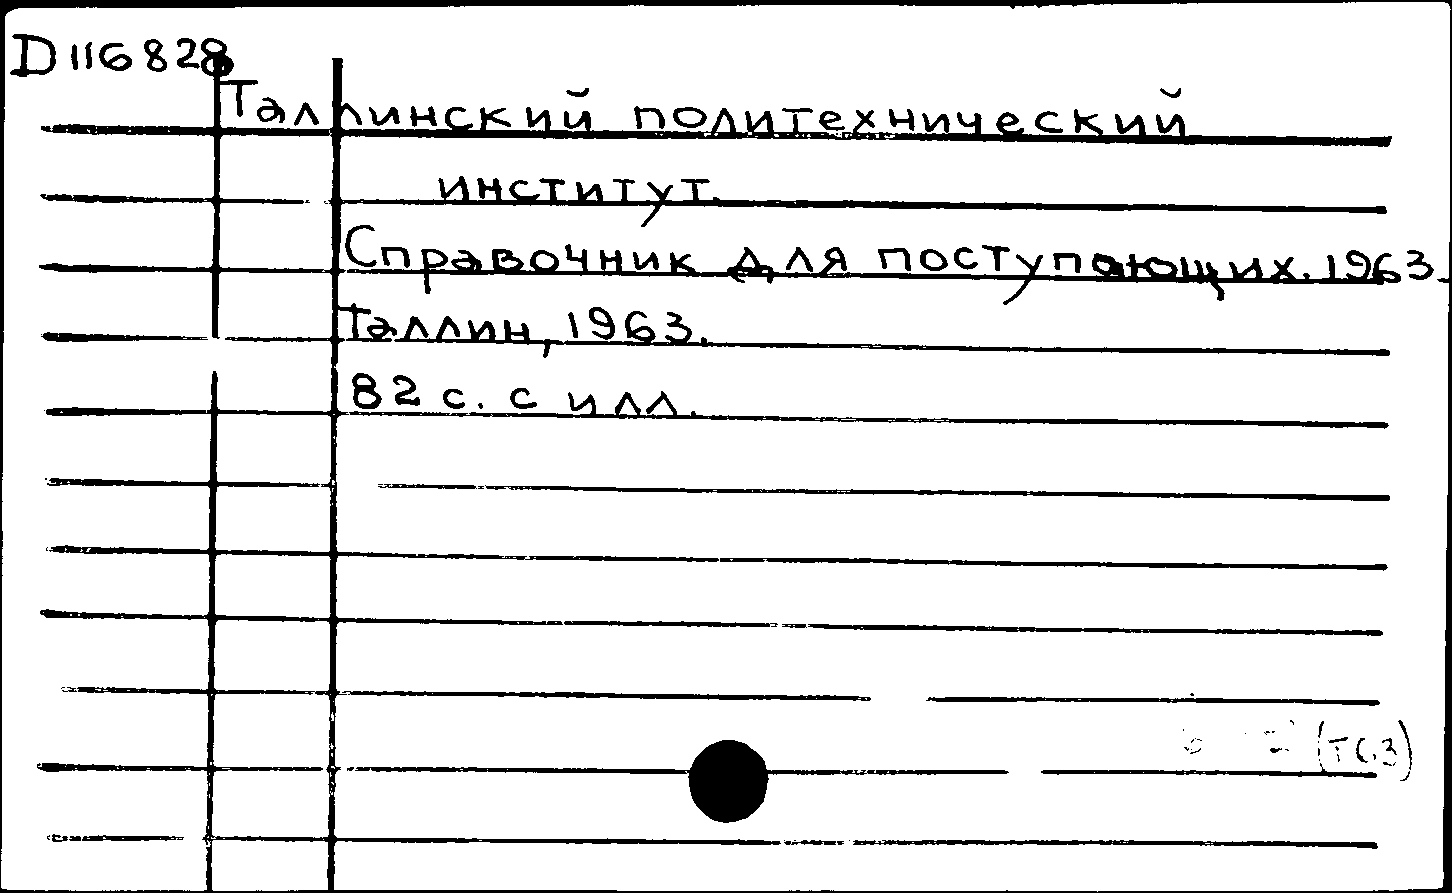 D 116 828
Таллинский политехнический
институт.
Справочник для поступающих. 1963.
Таллин, 1963.
82 с. с илл.